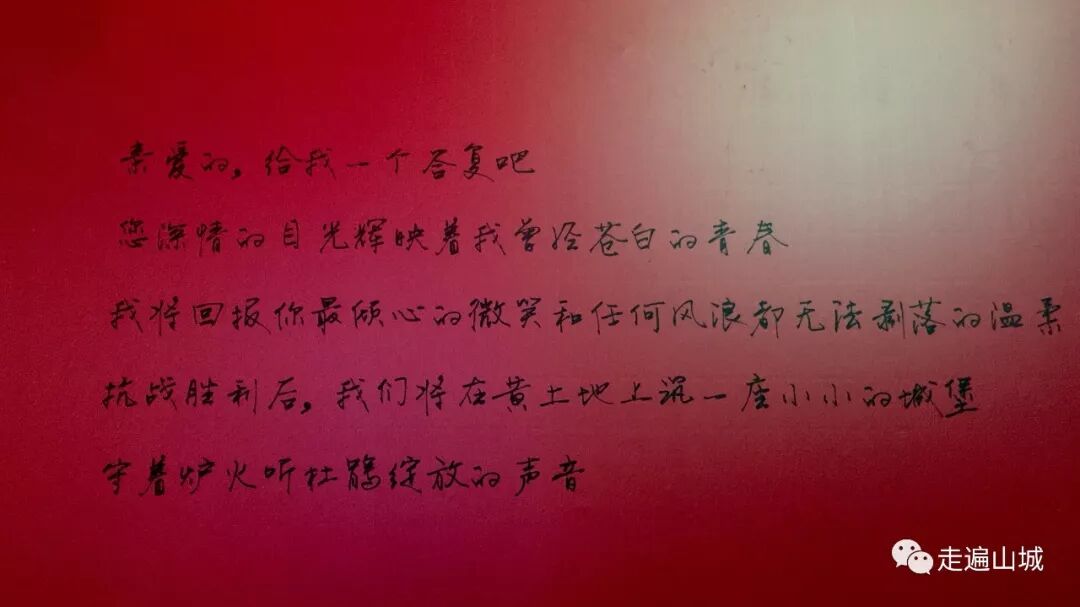 亲爱的，给我一个答复吧
您深情的目光辉映着我曾经苍白的青春
我将回报你最倾心的微笑和任何风浪都无法剥落的温柔
抗战胜利后，我们将在黄土地上筑一座小小的城堡
守着炉火听杜鹃绽放的声音
走遍山城